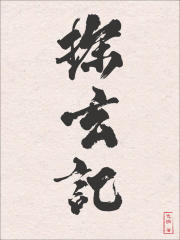 探玄記